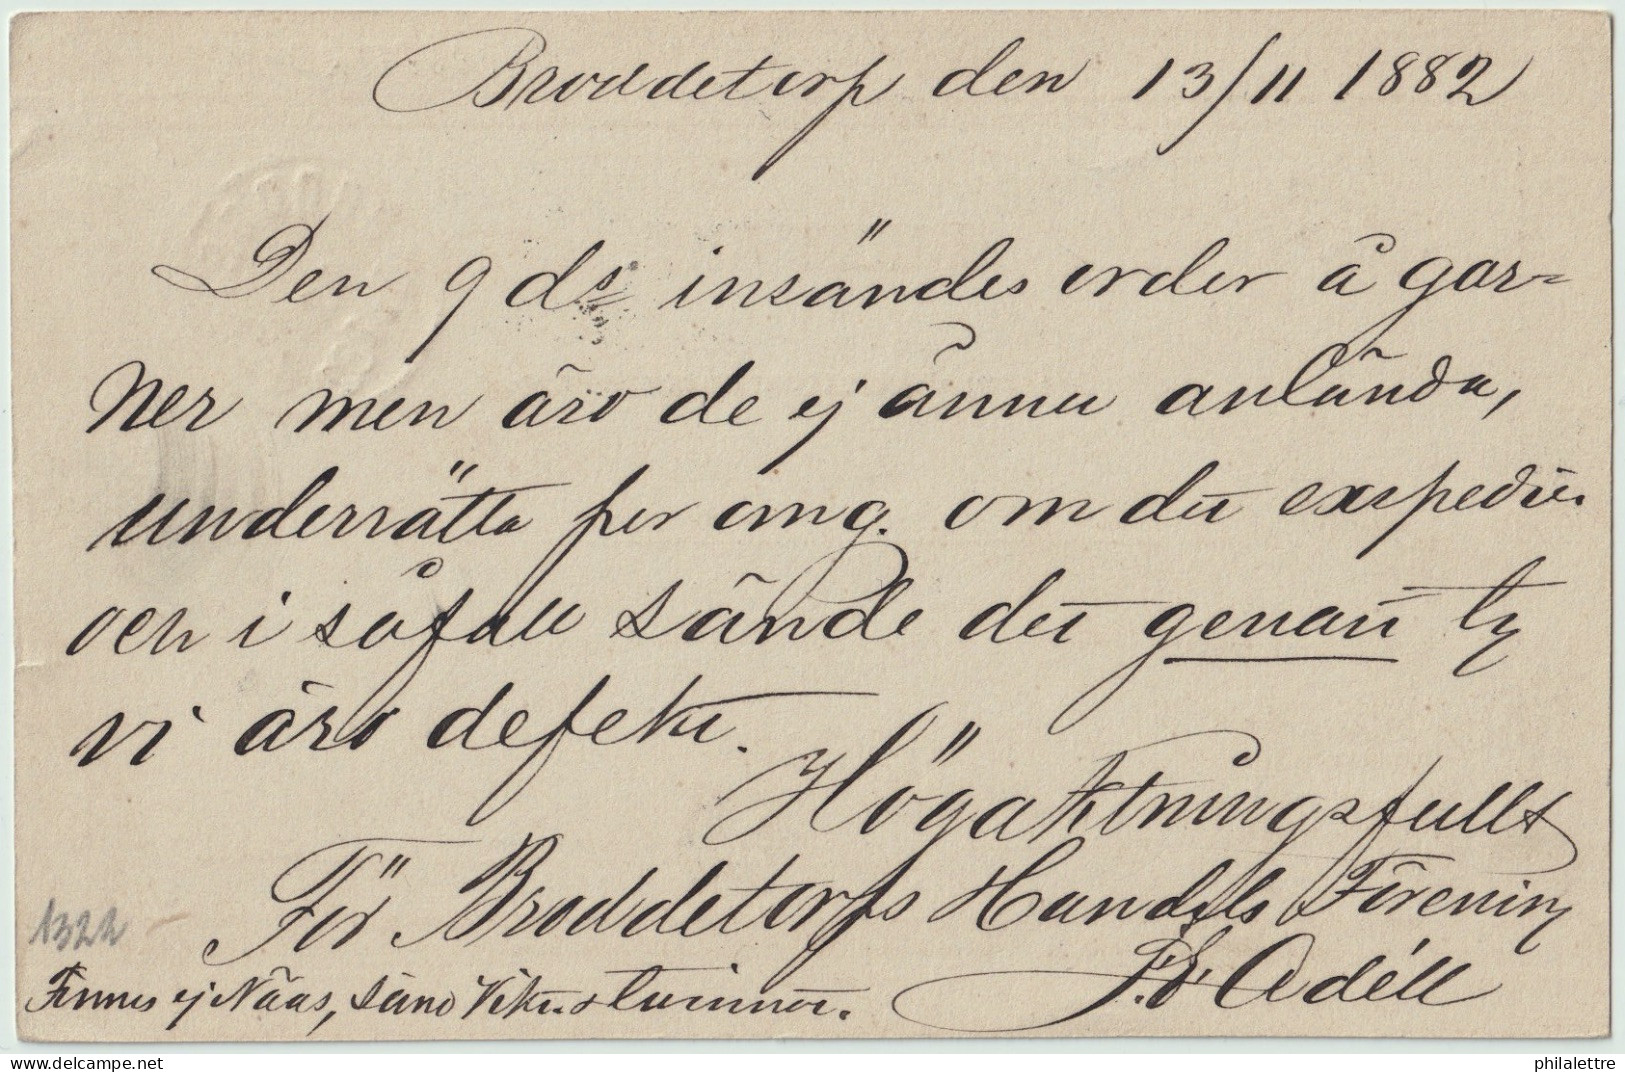 Broddetorp den 13/11 1882
Den 9 ds insändes order å gar=
ner men äro de ej ännu anlända,
underrätta per omg. om det exspedier.
och i såfall sände det genast ty
vi äro defekt.
Högaktningsfullt
För Broddetorps Handels Förening
Adéll
1322
Finnes ej Nääs, sänd
delcampe.net
philalettre